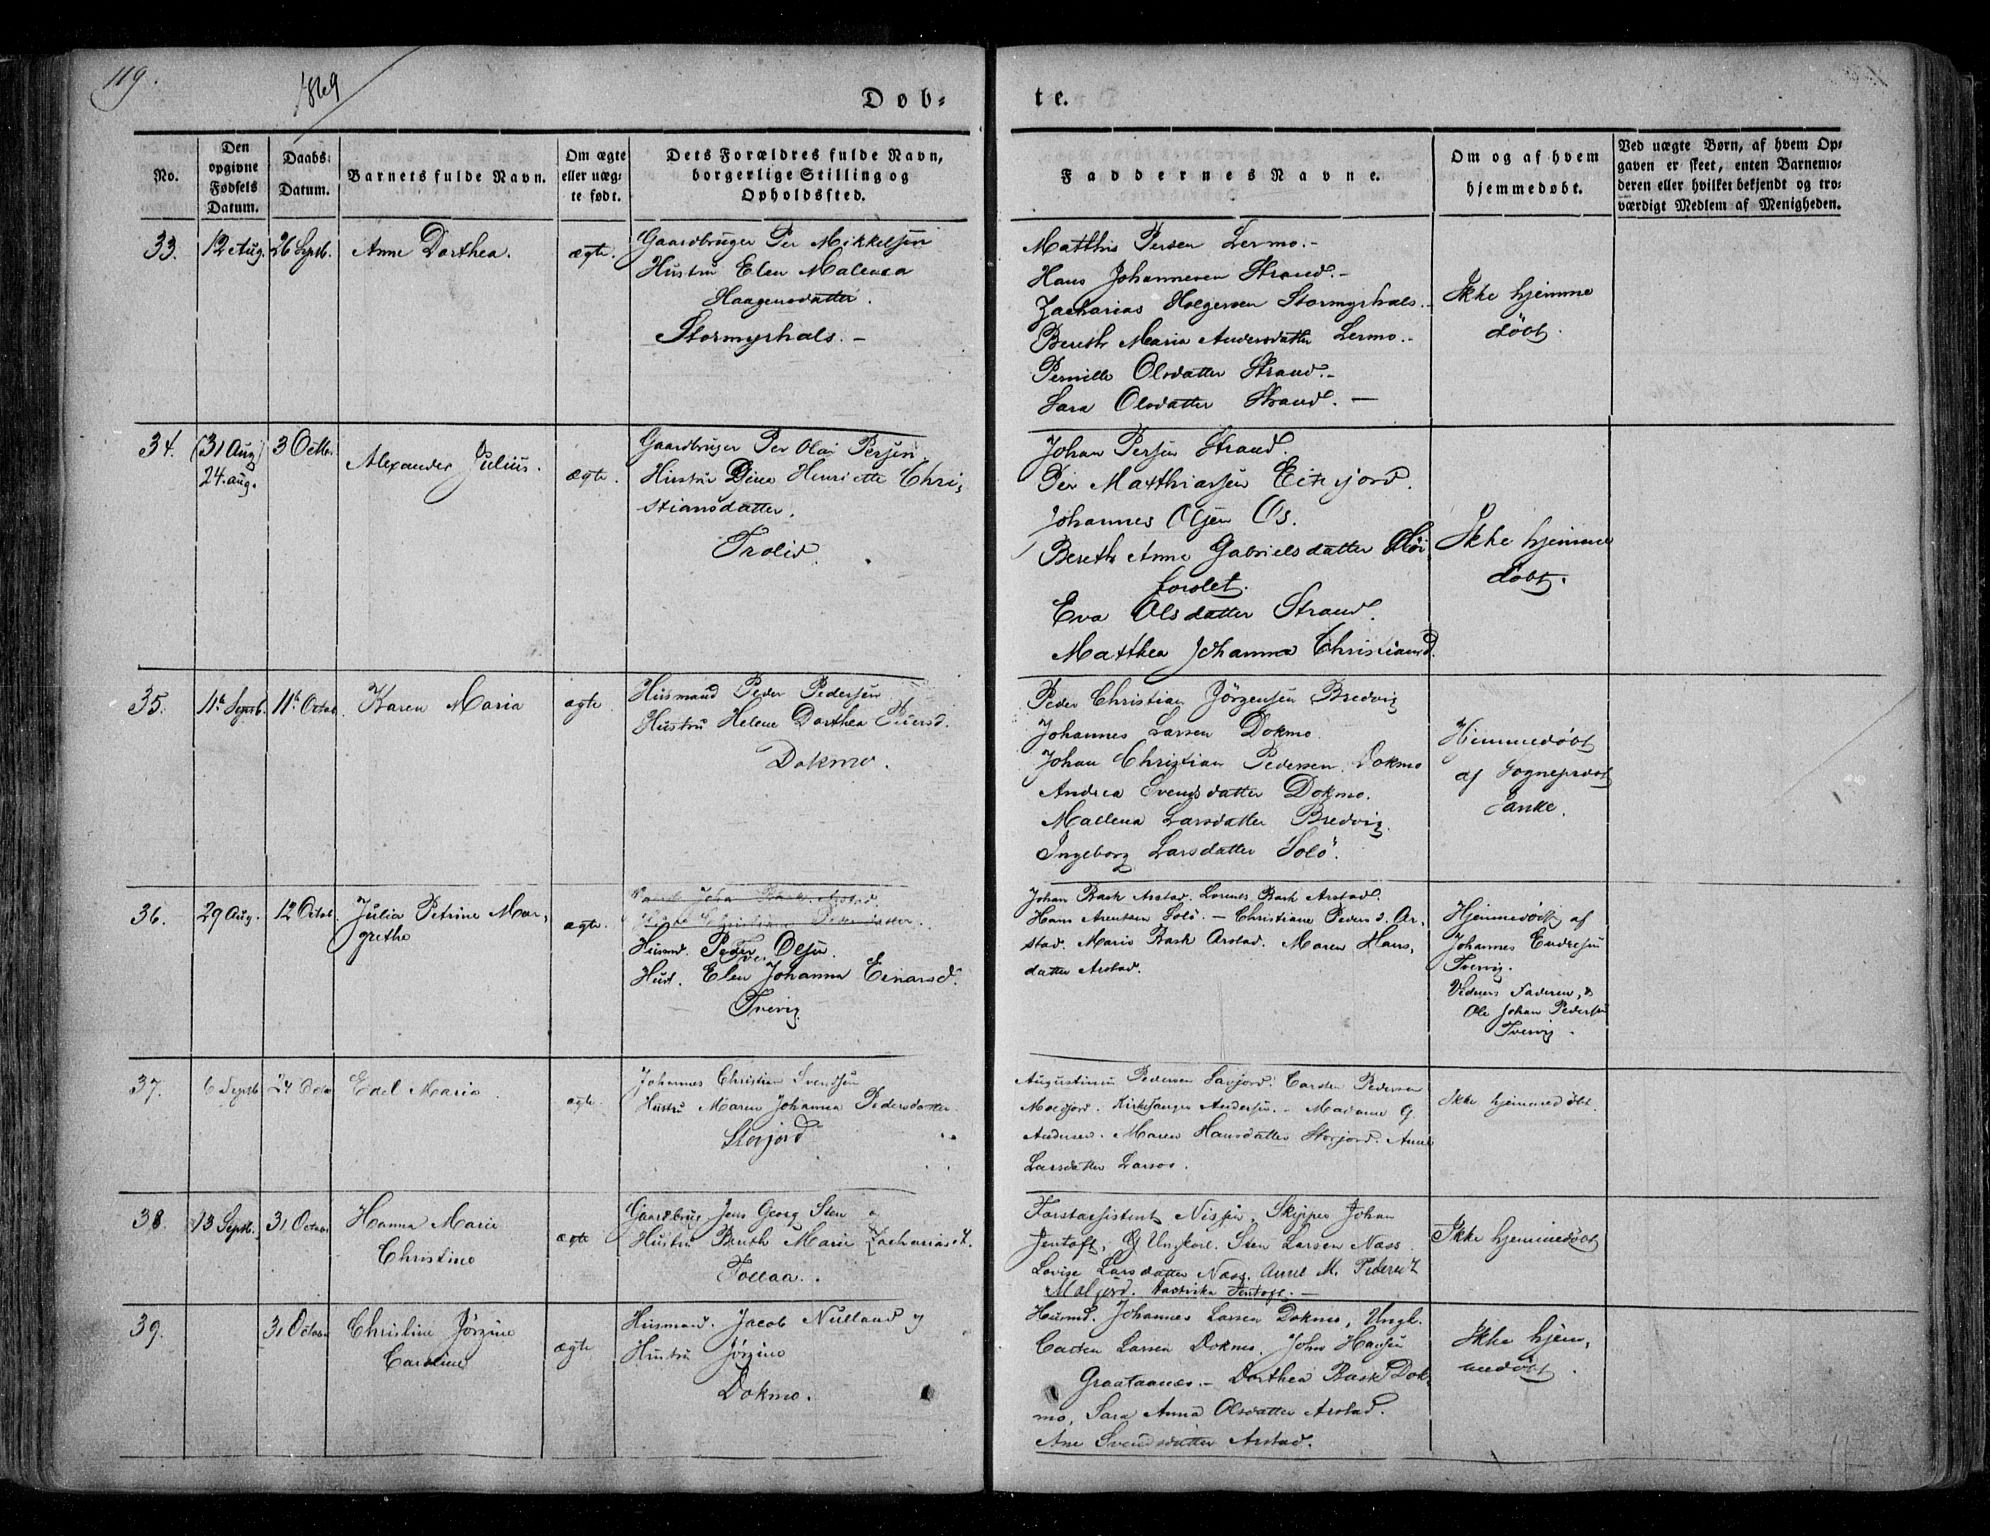 119.
1869
Døb-
te.
No.
Den
opgivne
Fødsels
Datum.
Daabs-
Datum.
Barnets fulde Navn.
Om ægte
eller uæg-
te født.
Dets Forældres fulde Navn,
borgerlige Stilling og
Opholdssted.
Faddernes Navne.
Om og af hvem
hjemmedøbt.
Ved uægte Børn, af hvem Op-
gaven er skeet, enten Barnemo-
deren eller hvilket bekjendt og tro-
værdigt Medlem af Menigheden.
33.
12 Aug.
26 Septb.
Anne Dorthea.
ægte.
Gaardbruger Per Mikkelsen
Hustru Elen Malena
Haagensdatter.
Stormyrhals. –
Matthis Persen Lermo. –
Hans Johannesen Strand. –
Zacharias Holgersen Stormyrhals. –
Bereth Maria Andersdatter Lermo. –
Pernille Olsdatter Strand. –
Sara Olsdatter Strand. –
Ikke hjemme
døbt.
34.
(31 Aug)
24. aug.
3 Octbr.
Alexander Julius.
ægte.
Gaardbruger Per Olai Persen
Hustru Dina Henriette Chri-
stiansdatter.
Trolid.
Johan Persen Strand.
Per Matthiassen Eiterjord.
Johannes Olsen Os.
Bereth Anne Gabrielsdatter
forslet.
Eva Olsdatter Strand.
Matthea Johanna Christiansd.
Ikke hjemme
døbt.
35.
11te Septb.
11te Octob.
Karen Maria
ægte.
Husmand Peder Pedersen
Hustru Helene Dorthea
Dokmo.
Peder Christian Jørgensen Bredvig
Johannes Larsen Dokmo.
Johan Christian Pedersen Dokmo
Andrea Svendsdatter Dokmo.
Mallena Larsdatter Bredvig.
Ingeborg Larsdatter Solö.
Hjemmedøbt
af Sogneprost
Janke.
36.
29 Aug.
12 Octob.
Julia Petrine Mar-
grethe
ægte.
Husmd. Peder Olsen.
Hust. Elen Johanna Einarsd.
Tvervig
Johan Bask Arstad. Lorents Bask Arstad.
Hans Arentsen Solö. – Christiane Pedersd. Ar-
stad. Maris Bask Arstad. Maren Hans-
datter Arstad.
Hjemmedøbt af
Johannes Endresen
Tvervig.
Vidner Faderen, &
Ole Johan Pedersen
Tvervig.
37.
6 Septb.
24 Octob
Edel Maria
ægte.
Johannes Christian Svendsen
Hustru Maren Johanna Pedersdatter.
Storjord
Augustinus Pedersen Savjord. Carsten Pedersen
Moldjord. Kirkesanger Andersen. – Marianne G.
Andersen. Maren Hansdatter Storjord. Anne
Larsdatter Larsos.
Ikke hjemmedøbt.
38.
13 Septb.
31 Octob.
Hanna Marie
Christine
ægte
Gaardbrug. Jens Georg Sten
Hustru Bereth Marie Zachariasd.
Tollaa.
Forstassistent Nissen. Skipper Johan
Jentoft, Ungkarl. Sten Larsen Nass.
Lovise Larsdatter Nass. Anne M. Pedersd.
Moljord. Hartvika Jentoft. –
Ikke hjemmedøbt
39.
31 Octobr.
Christine Jørgine
Caroline
ægte
Husmand. Jacob Nulland og
Hustru Jørgine
Dokmo.
Husmd. Johannes Larsen Dokmo, Ungk.
Larsen Dokmo. John Hansen
Graataanæs. – Dorthea Bask Dok-
mo, Sara Anna Olsdatter Arstad.
Ane Svendsdatter Arstad.
Ikke hjem-
medøbt.